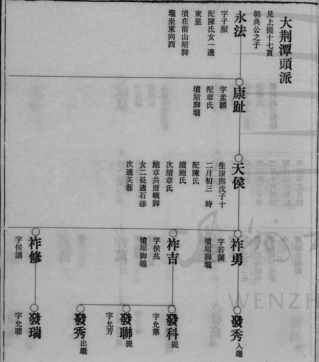 大荆潭頭派
見上提十七頁
朝典公之子
永法
字子顏
配陳氏女一適
東里
墳在前山路脚
壠坐東向西
康趾
字孟麟
配章氏
墳路脚壠
天侯
生康熙戊子十
二月初三 時
配陳氏
續鮑氏
次續章氏
鮑章共厝路脚
女二長適石
次適芙蓉
祚勇
字若
墳路脚壠
祚吉
字侯兆
墳路脚壠
祚修
字侯講
發秀入繼
發科提
字允第
發聯提
字允芳
發秀出繼
發瑞
字允聰
WENZH